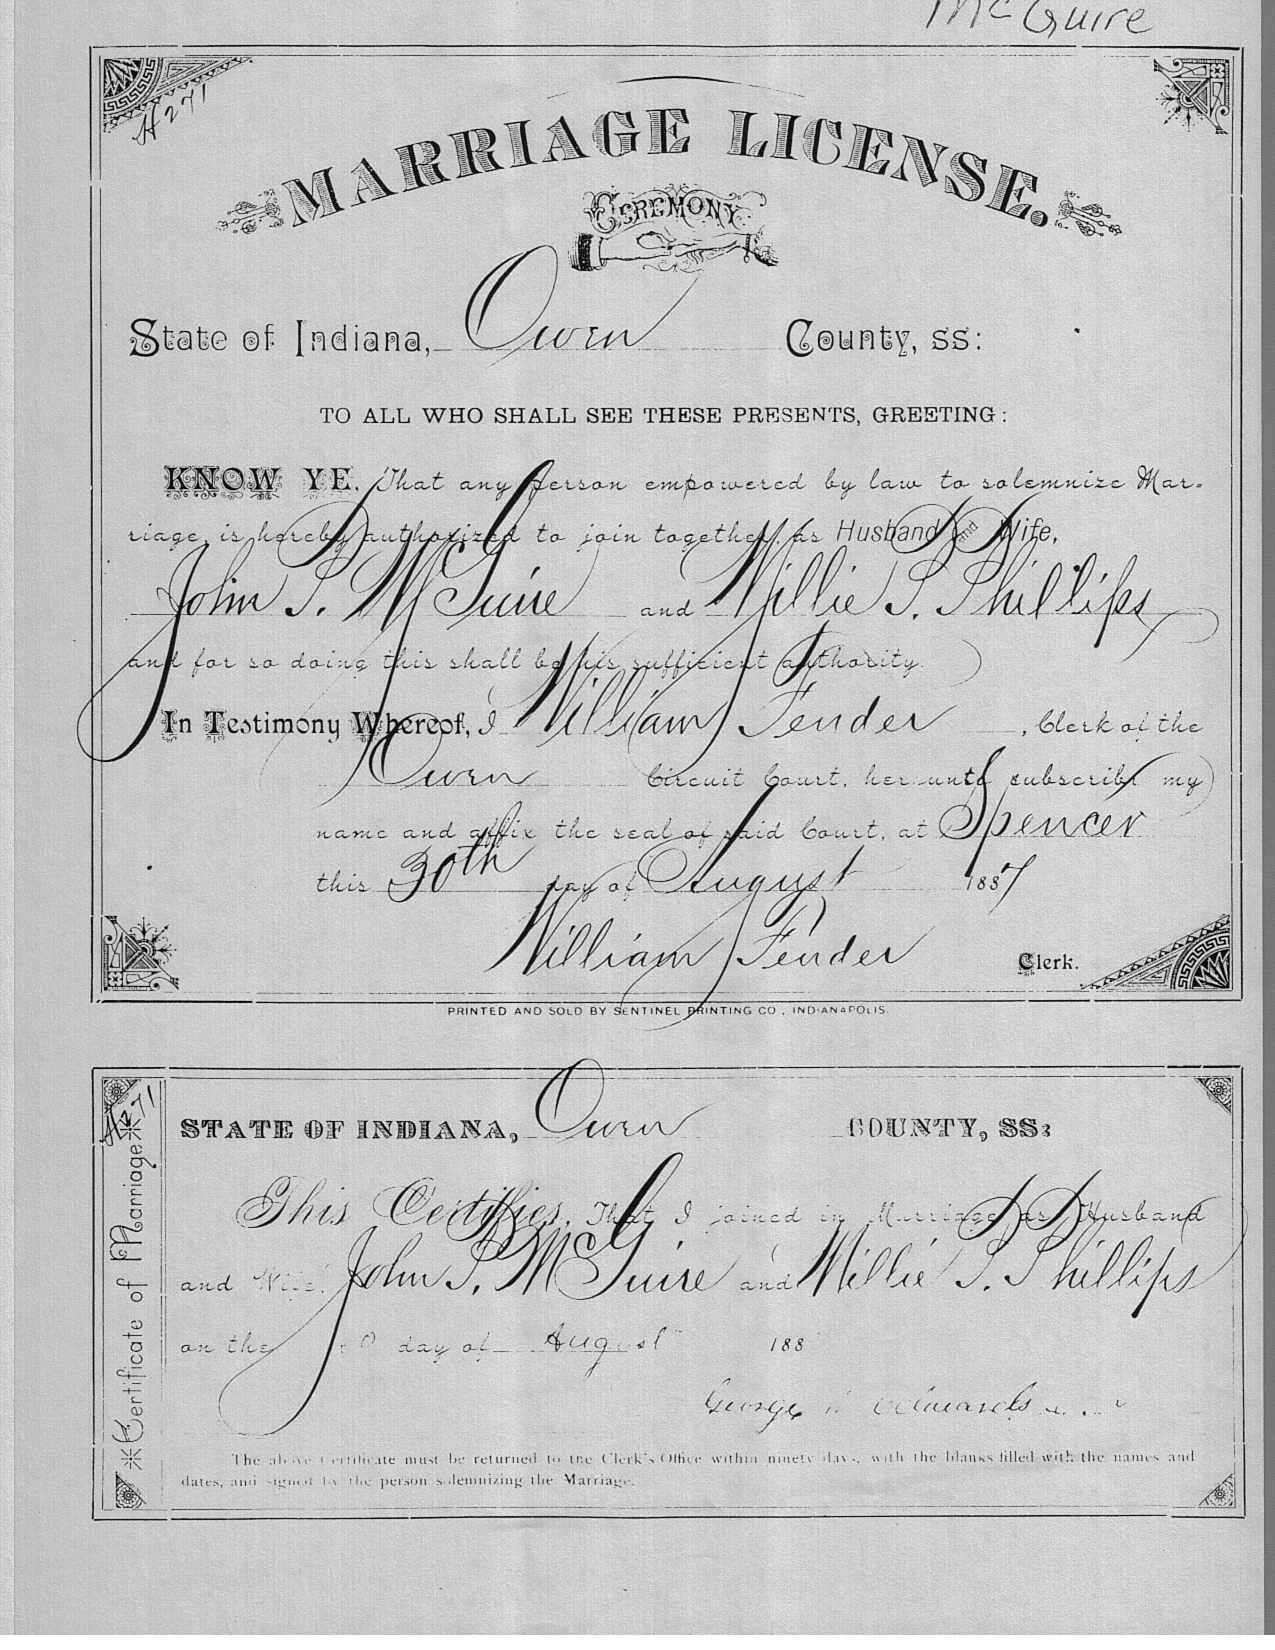 McGuire
H271
MARRIAGE LICENSE.
CEREMONY
State of Indiana, Owen County, ss:
TO ALL WHO SHALL SEE THESE PRESENTS, GREETING:
KNOW YE, That any person empowered by law to solemnize Mar-
riage, is hereby authorized to join together as Husband and Wife,
John S. McGuire and Willie S. Phillips
and for so doing this shall be his sufficient authority.
In Testimony Whereof, I William Fender, Clerk of the
Owen Circuit Court, hereunto subscribe my
name and affix the seal of said Court, at Spencer
this 30th day of August 1887
William Fender Clerk.
PRINTED AND SOLD BY SENTINEL PRINTING CO., INDIANAPOLIS.
H271
Certificate of Marriage
STATE OF INDIANA, Owen COUNTY, SS:
This Certifies, That I joined in Marriage as Husband
and Wife John S. McGuire and Willie S. Phillips
on the day of August 188
George Edwards
The above Certificate must be returned to the Clerk's Office within ninety days, with the blanks filled with the names and
dates, and signed by the person solemnizing the Marriage.